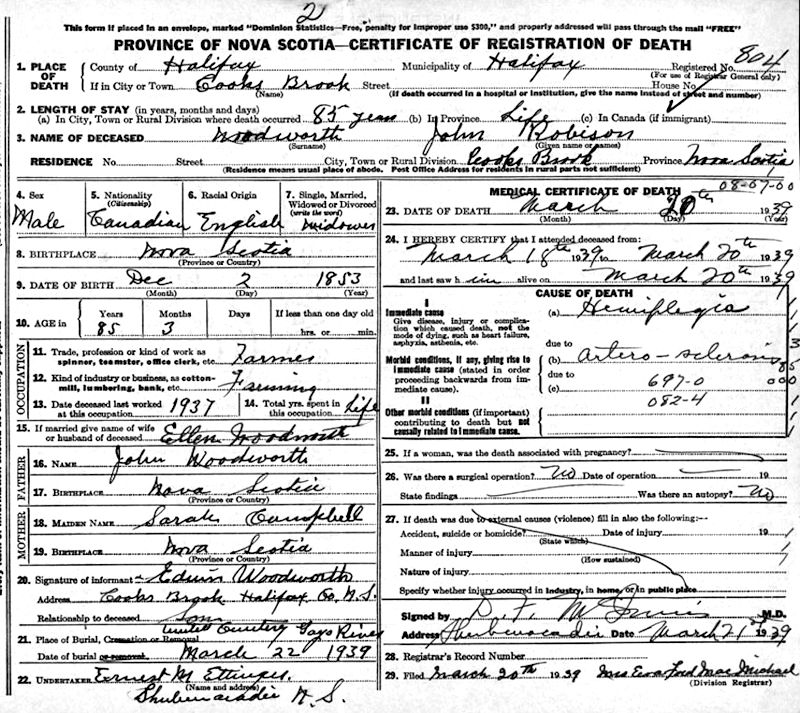 2
This form if placed in an envelope, marked "Dominion Statistics—Free, penalty for improper use $300," and properly addressed will pass through the mail "FREE"
PROVINCE OF NOVA SCOTIA—CERTIFICATE OF REGISTRATION OF DEATH
1. PLACE OF DEATH County of Halifax Municipality of Halifax Registered No. 804
(For use of Registrar General only)
If in City or Town Cooks Brook Street House No.
(Name) (If death occurred in a hospital or institution, give the name instead of street and number)
2. LENGTH OF STAY (in years, months and days)
(a) In City, Town or Rural Division where death occurred 85 years (b) In Province Life (c) In Canada (if immigrant)
3. NAME OF DECEASED Woodworth John Robison
(Surname) (Given name or names)
RESIDENCE No. Street City, Town or Rural Division Cooks Brook Province Nova Scotia
(Residence means usual place of abode. Post Office Address for residents in rural parts not sufficient)
4. Sex Male
5. Nationality (Citizenship) Canadian
6. Racial Origin English
7. Single, Married, Widowed or Divorced (write the word) Widower
8. BIRTHPLACE Nova Scotia
(Province or Country)
9. DATE OF BIRTH Dec 2 1853
(Month) (Day) (Year)
10. AGE in Years Months Days If less than one day old
85 3 hrs. or min.
OCCUPATION
11. Trade, profession or kind of work as spinner, teamster, office clerk, etc. Farmer
12. Kind of industry or business, as cotton-mill, lumbering, bank, etc. Farming
13. Date deceased last worked at this occupation 1937
14. Total yrs. spent in this occupation Life
15. If married give name of wife or husband of deceased Ellen Woodworth
FATHER
16. NAME John Woodworth
17. BIRTHPLACE Nova Scotia
(Province or Country)
MOTHER
18. MAIDEN NAME Sarah Campbell
19. BIRTHPLACE Nova Scotia
(Province or Country)
20. Signature of informant Edwin Woodworth
Address Cooks Brook Halifax Co. N.S.
Relationship to deceased Son
21. Place of Burial, Cremation or Removal United Cemetery Gays River
Date of burial or removal March 22 1939
22. UNDERTAKER Ernest M Ettinger
(Name and address)
Shubenacadie N.S.
MEDICAL CERTIFICATE OF DEATH 08-07-00
23. DATE OF DEATH March 20th 1939
(Month) (Day)
24. I HEREBY CERTIFY that I attended deceased from:
March 18th 1939 to March 20th 1939
and last saw him alive on March 20th 1939
CAUSE OF DEATH
I
Immediate cause
Give disease, injury or complication which caused death, not the mode of dying, such as heart failure, asphyxia, asthenia, etc.
(a) Hemiplegia
due to
Morbid conditions, if any, giving rise to immediate cause (stated in order proceeding backwards from immediate cause)
(b) artero-sclerosis
due to
(c) 697-0
082-4
85
000
II
Other morbid conditions (if important) contributing to death but not causally related to immediate cause.
25. If a woman, was the death associated with pregnancy?
26. Was there a surgical operation? No Date of operation 19
State findings Was there an autopsy? No
27. If death was due to external causes (violence) fill in also the following:—
Accident, suicide or homicide? Date of injury 19
(State which)
Manner of injury
(How sustained)
Nature of injury
Specify whether injury occurred in industry, in home, or in public place
Signed by D. F. M.D.
Address Shubenacadie Date March 21st 1939
28. Registrar's Record Number
29. Filed March 20th 1939 Mrs Eva Ford MacMichael
(Division Registrar)